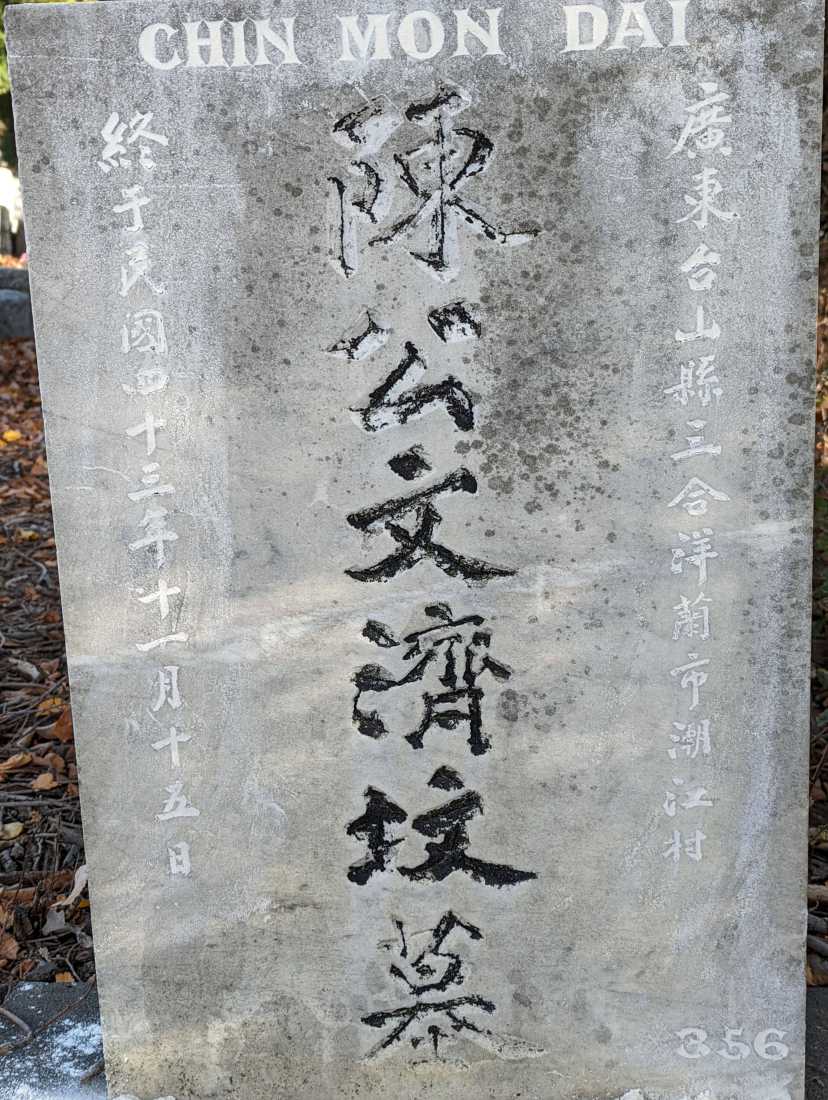 CHIN MON DAI
廣東台山縣三合洋蘭市潮江村
陳公文濟坟墓
終于民國四十三年十一月十五日
356